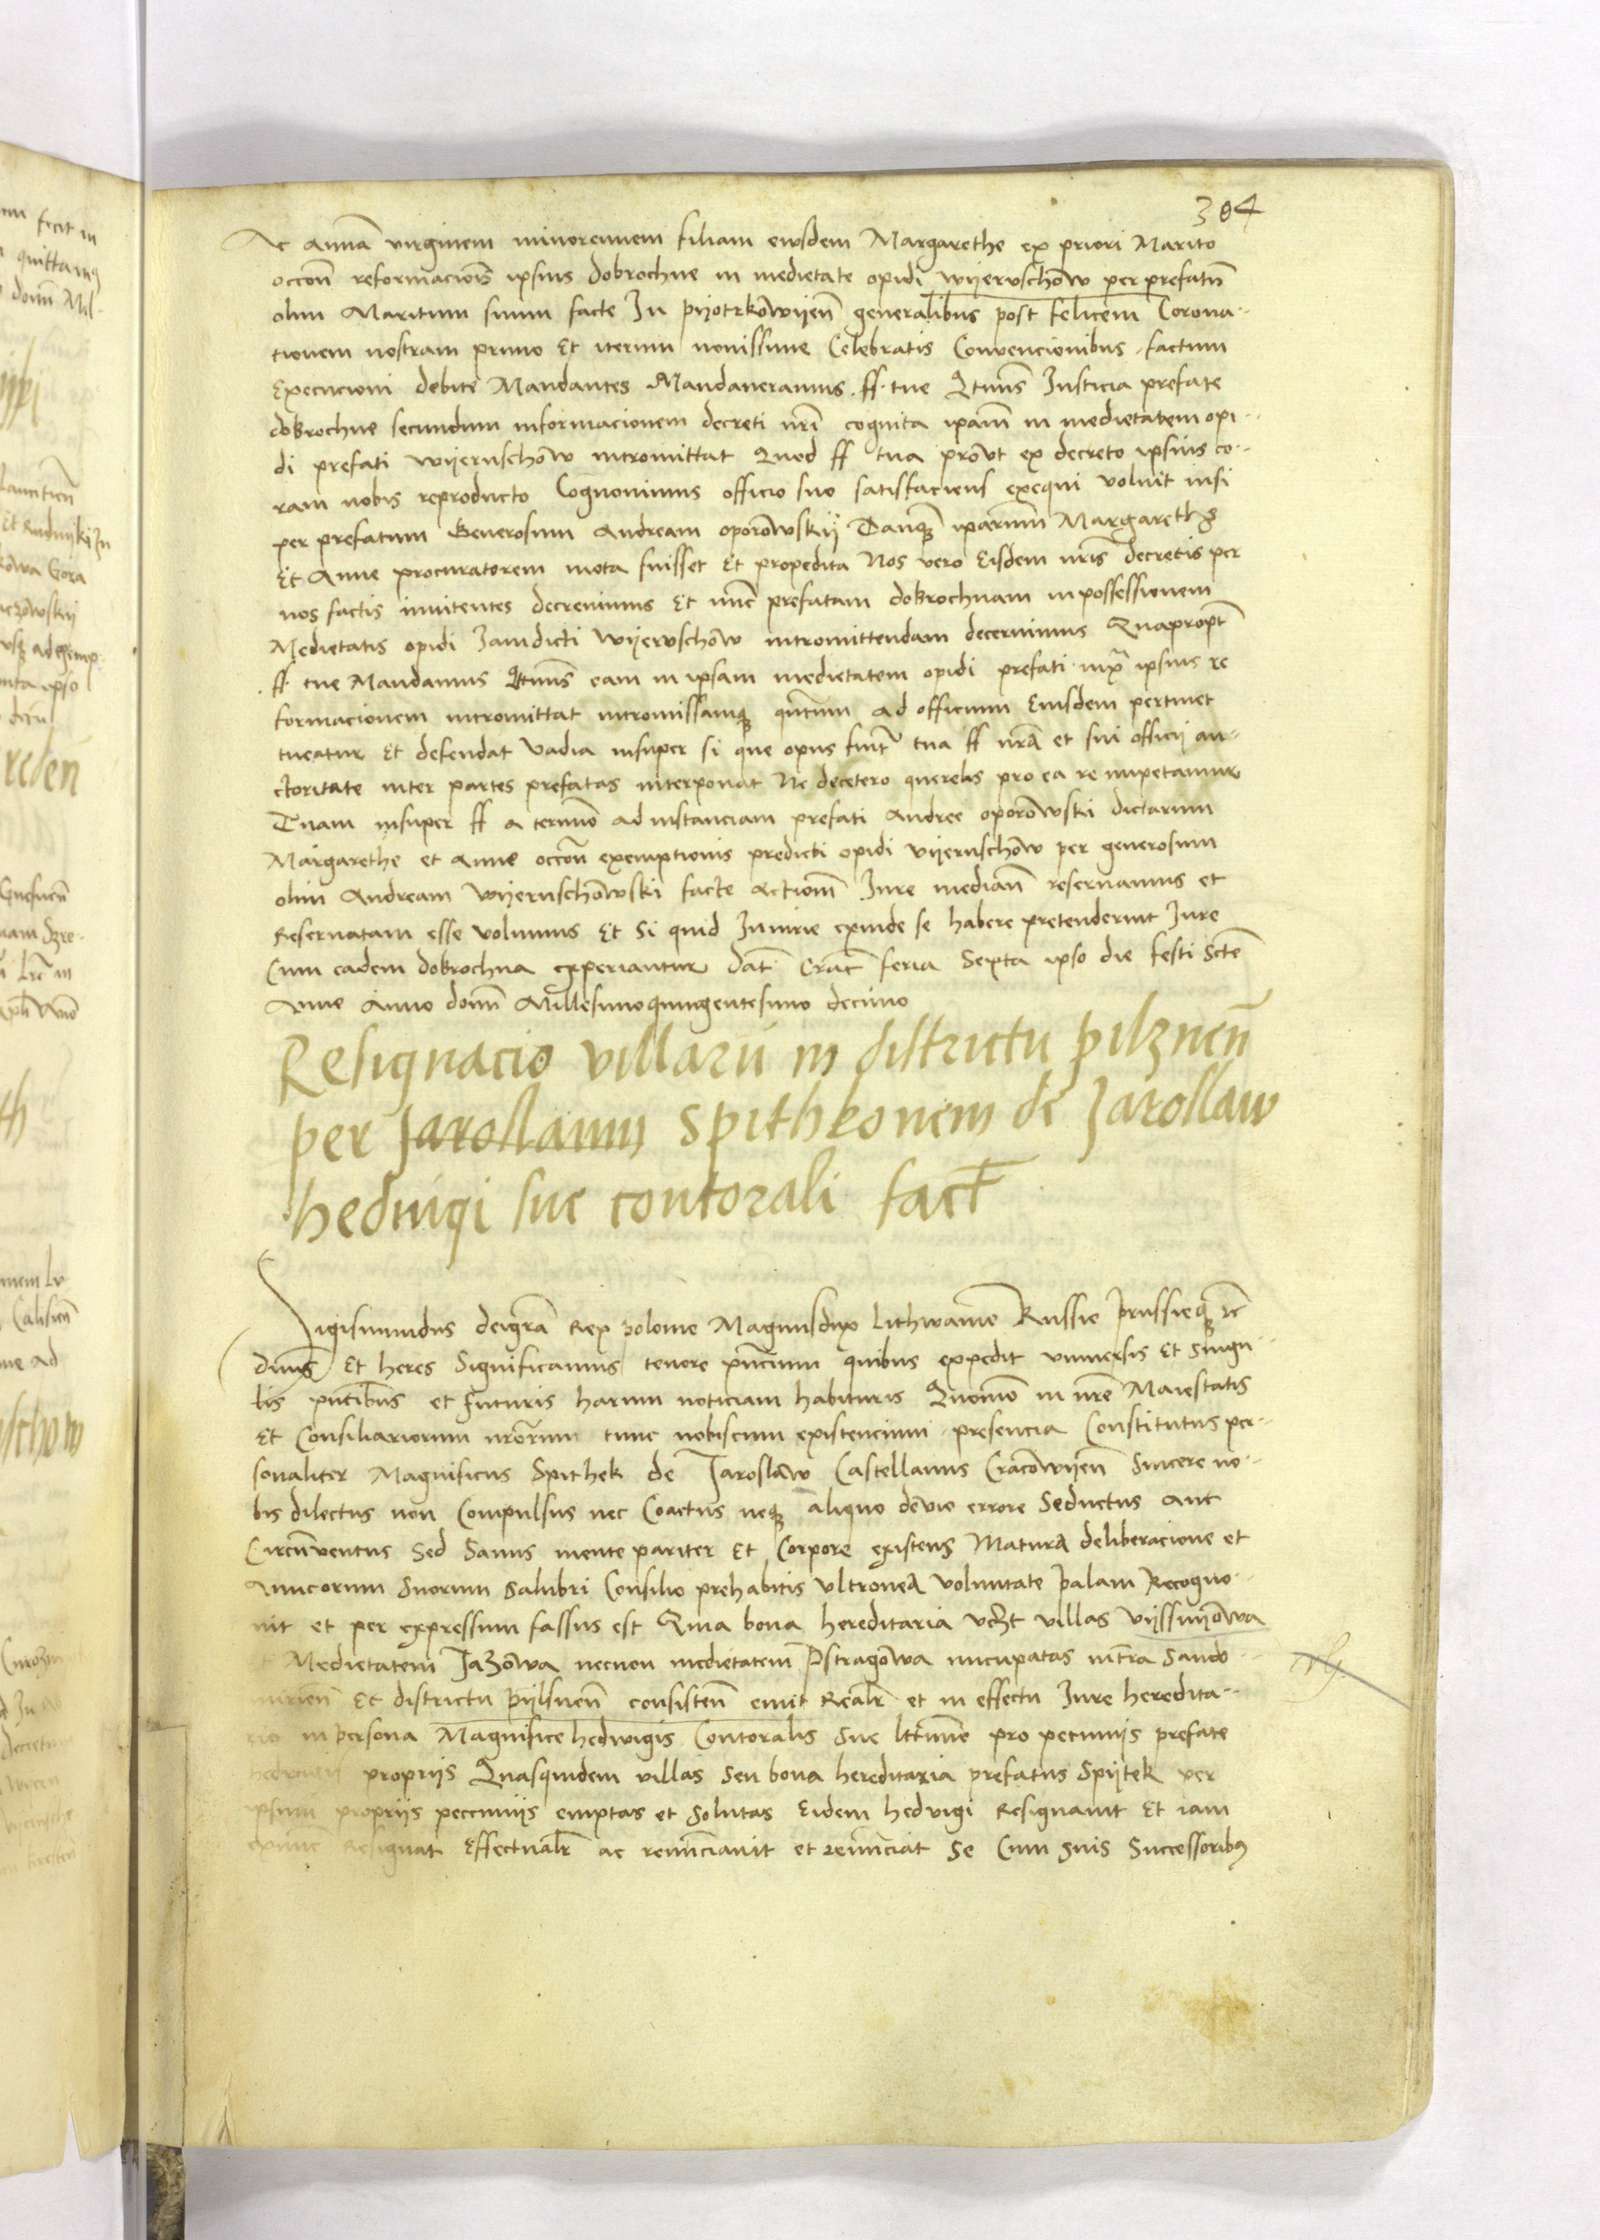 304
Ac annā virginem minorennem filiam eiusdem Margarethe ex priori Marito
occoñ reformacioīs ipsius dobrochne in medietate opidi wyeruschow per prefatū
olim Maritum suum facte In pyotrkowyeñ generalibus post felicem Corona-
tionem nostram primo Et iterum novissime Celebratis Convencionibus factum
Execucioni debite Mandantes Mandaveramus ff tue Qtenus Iusticia prefate
dobrochne secundum informacionem decreti nr̄i cognita ipam̄ in medietatem opi-
di prefati wyeruschow intromittat Quod ff tua prout ex decreto ipsius co-
ram nobis reproducto Cognovimus officio suo satisfaciens exequi voluit nisi
per prefatum Generosum Andream oporowskij Tanq̄ ipārum Margarethe
Et Anne procuratorem mota fuisset Et propedita Nos vero Eisdem nr̄is decretis per
nos factis innitentes decrevimus Et nūc prefatam dobrochnam in possessionem
Medietatis opidi Iamdicti wyeruschow intromittendam decernimus Quapropt̄
ff tue Mandamus Qtenus eam in ipsam medietatem opidi prefati iuxa ipsius re
formacionem intromittat intromissamq̄ qntum ad officium Eiusdem pertinet
tueatur Et defendat vadia insuper si que opus fuīt tua ff nrā et sui officii au-
ctoritate inter partes prefatas interponat Ne decetero querelis pro ea re impetamur
Tuam insuper ff a termīo ad instanciam prefati Andree oporowski dictarum
Margarethe et Anne occoñ exemptionis predicti opidi vyeruschow per generosum
olim Andream wyeruschowski facte actiom̄ Iure mediañ reservamus et
Reservatam esse volumus Et Si quid Iniurie exinde se habere pretenderint Iure
Cum eadem dobrochna experiantur dat̄ Crac̄ feria Sexta ipso die festi Sctē
Anne Anno domī Millesimoquingentesimo decimo
Resignacio villarū in districtu pilzneñ
per Jaroslaum Spithkonem de Jaroslaw
hedvigi sue contorali fact̄
Sigismundus deigrā Rex polonie Magnusdux Lithwanie Russie prussieq̄ rc̄
dūus Et heres Significamus tenore pn̄cium quibus expedit vniversis Et Singu-
lis pn̄tibus et futuris harum noticiam habituris Quomō in nr̄e Maiestatis
Et Consiliariorum nrōrum tunc nobiscum existencium presencia Constitutus per-
sonaliter Magnificus Spithek de Jaroslaw Castellanus Cracowyeñ Sincere no-
bis dilectus non Compulsus nec Coactus neq̄ aliquo devio errore Seductus aut
Circūventus Sed Sanus mente pariter Et Corpore existens Matura deliberacione et
Amicorum Suorum Salubri Consilio prehabitis vltronea voluntate palam Recogno-
vit et per expressum fassus est Quia bona hereditaria vczt villas vyssnyowa
Medietatem Jazowa necnon medietatem Pstragowa nūcupatas in tr̄ra Sando-
mirieñ Et districtu pylsneñ consisteñ emit Realr̄ et in effectu Iure heredita-
rio in persona Magnifice hedwigis Contoralis Sue lttime pro pecuniis prefate
hedvigij propriis Quasquidem villas Seu bona hereditaria prefatus Spytek per
ipsum propriis peccuniis emptas et Solutas Eidem hedvigi Resignavit Et iam
exnunc Resignat Effectualr̄ ac renūnciavit et renūnciat Se Cum Suis Successoribus